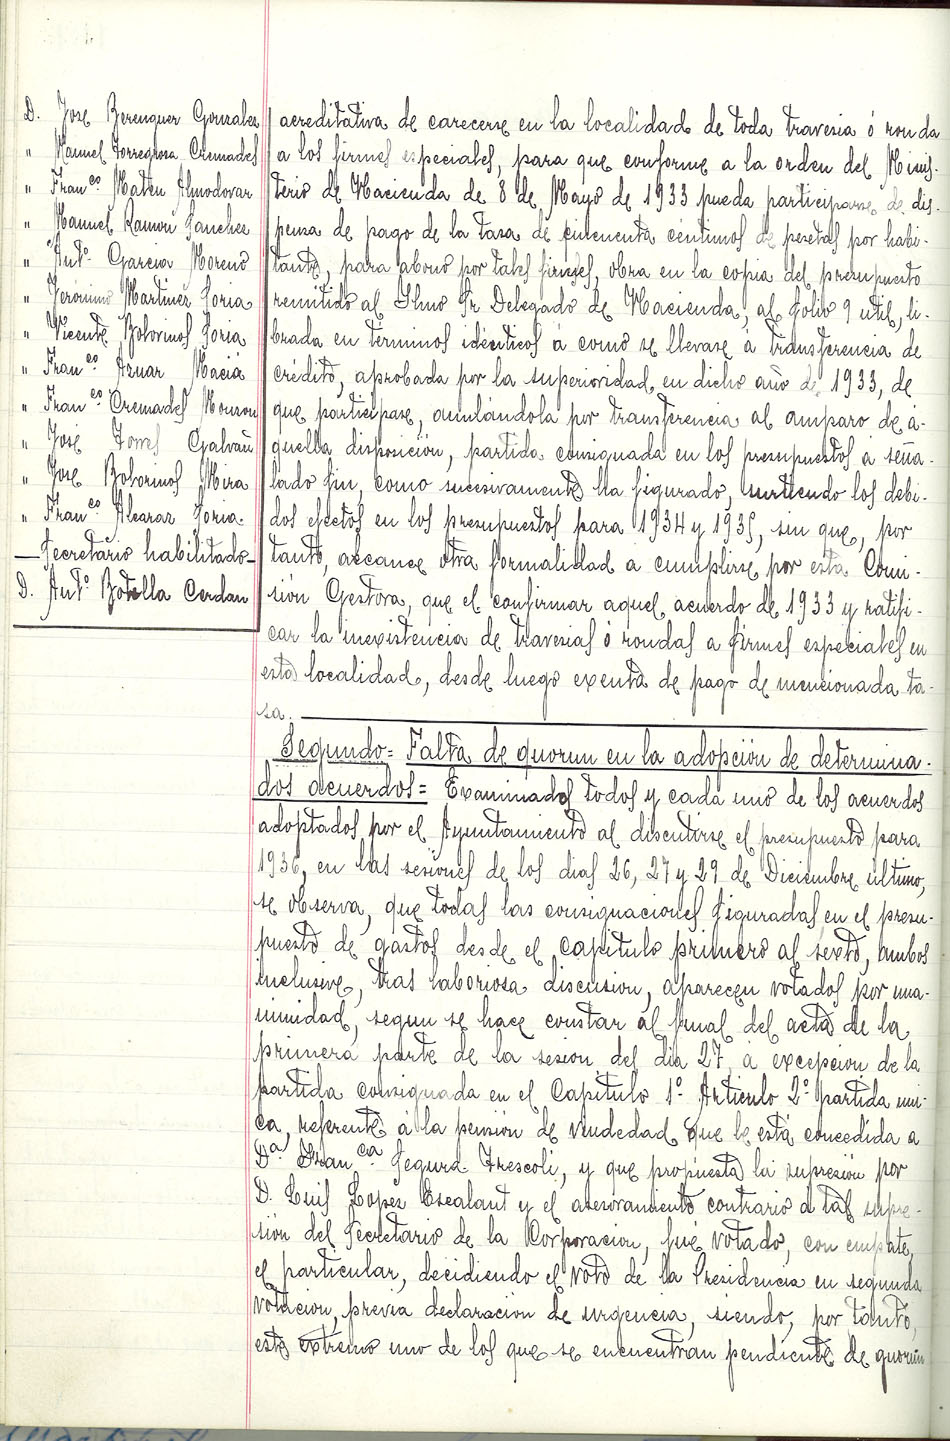 D. Jose Berenguer Gonzalez
" Manuel Torregrosa Cremades
" Fran.co Mateu Almodovar
" Manuel Ramon Sanchez
" Ant.o Garcia Moreno
" Jerónimo Martinez Soria
" Vicente Bolorinos Soria
" Fran.co Aznar Maciá
" Fran.co Cremades Monzon
" José Torres Galvañ
" Jose Bolorinos Mira
" Fran.co Alcaraz Soria
— Secretario habilitado —
D. Ant.o Botella Cerdan
acreditativa de carecerse en la localidad de toda travesia ó ronda
a los firmes especiales, para que conforme a la orden del Minis-
terio de Hacienda de 8 de Mayo de 1933 pueda participarse de dis-
pensa de pago de la tasa de cincuenta céntimos de pesetas por habi-
tante, para abono por tales firmes, obra en la copia del presupuesto
remitido al Ilmo Sr Delegado de Hacienda, al folio 9 util, li-
brada en términos idénticos á como se llevase a transferencia de
crédito, aprobada por la superioridad en dicho año de 1933, de
que participase, anulándola por transferencia al amparo de a-
quella disposición, partida consignada en los presupuestos a seña-
lado fin, como sucesivamente ha figurado, surtiendo los debi-
dos efectos en los presupuestos para 1934 y 1935, sin que, por
tanto, alcance otra formalidad a cumplirse por esta Comi-
sión Gestora, que el confirmar aquel acuerdo de 1933 y ratifi-
car la inexistencia de travesias ó rondas a firmes especiales en
esta localidad, desde luego exenta de pago de mencionada ta-
sa.
Segundo= Falta de quorun en la adopción de determina-
dos acuerdos= Examinados todos y cada uno de los acuerdos
adoptados por el Ayuntamiento al discutirse el presupuesto para
1936, en las sesiones de los dias 26, 27 y 29 de Diciembre ultimo,
se observa, que todas las consignaciones figuradas en el presu-
puesto de gastos desde el capitulo primero al sexto, ambos
inclusive, tras laboriosa discusion, aparecen votados por una-
nimidad, segun se hace constar al final del acta de la
primera parte de la sesion del dia 27, á excepcion de la
partida consignada en el Capitulo 1º Articulo 2º partida uni-
ca, referente á la pensión de viudedad que le está concedida a
Dª Francª Segura Frescoli, y que propuesta la supresion por
D. Luis Lopez Escalant y el asesoramiento contrario a tal supre-
sión del Secretario de la Corporacion, fué votado, con empate,
el particular, decidiendo el voto de la Presidencia en segunda
votacion, previa declaracion de urgencia, siendo, por tanto,
este extremo uno de los que se encuentran pendiente de quorun